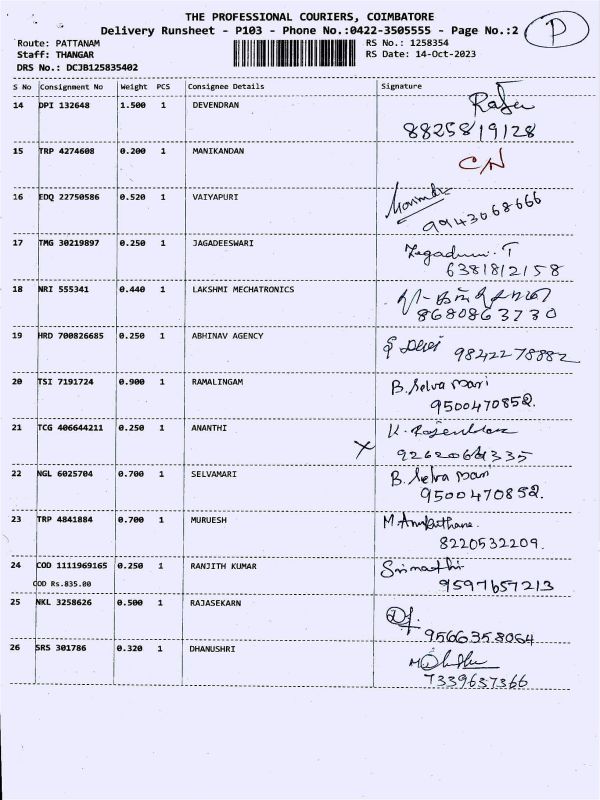 THE PROFESSIONAL COURIERS, COIMBATORE
Delivery Runsheet - P103 - Phone No.:0422-3505555 - Page No.:2
P
Route: PATTANAM RS No.: 1258354
Staff: THANGAR RS Date: 14-Oct-2023
DRS No.: DCJB125835402
S No Consignment No Weight PCS Consignee Details Signature
14 DPI 132648 1.500 1 DEVENDRAN
8825819128
15 TRP 4274608 0.200 1 MANIKANDAN
16 EDQ 22750586 0.520 1 VAIYAPURI
9943068666
17 TMG 30219897 0.250 1 JAGADEESWARI
6381812158
18 NRI 555341 0.440 1 LAKSHMI MECHATRONICS
8680863730
19 HRD 700826685 0.250 1 ABHINAV AGENCY
9842278882
20 TSI 7191724 0.900 1 RAMALINGAM B. Selva mari
9500470852.
21 TCG 406644211 0.250 1 ANANTHI
X
22 NGL 6025704 0.700 1 SELVAMARI B. Selva mari
9500470852.
23 TRP 4841884 0.700 1 MURUESH
8220532209.
24 COD 1111969165 0.250 1 RANJITH KUMAR Srimathi
COD Rs.835.00 9597657213
25 NKL 3258626 0.500 1 RAJASEKARN
9566358064
26 SRS 301786 0.320 1 DHANUSHRI
7339637366